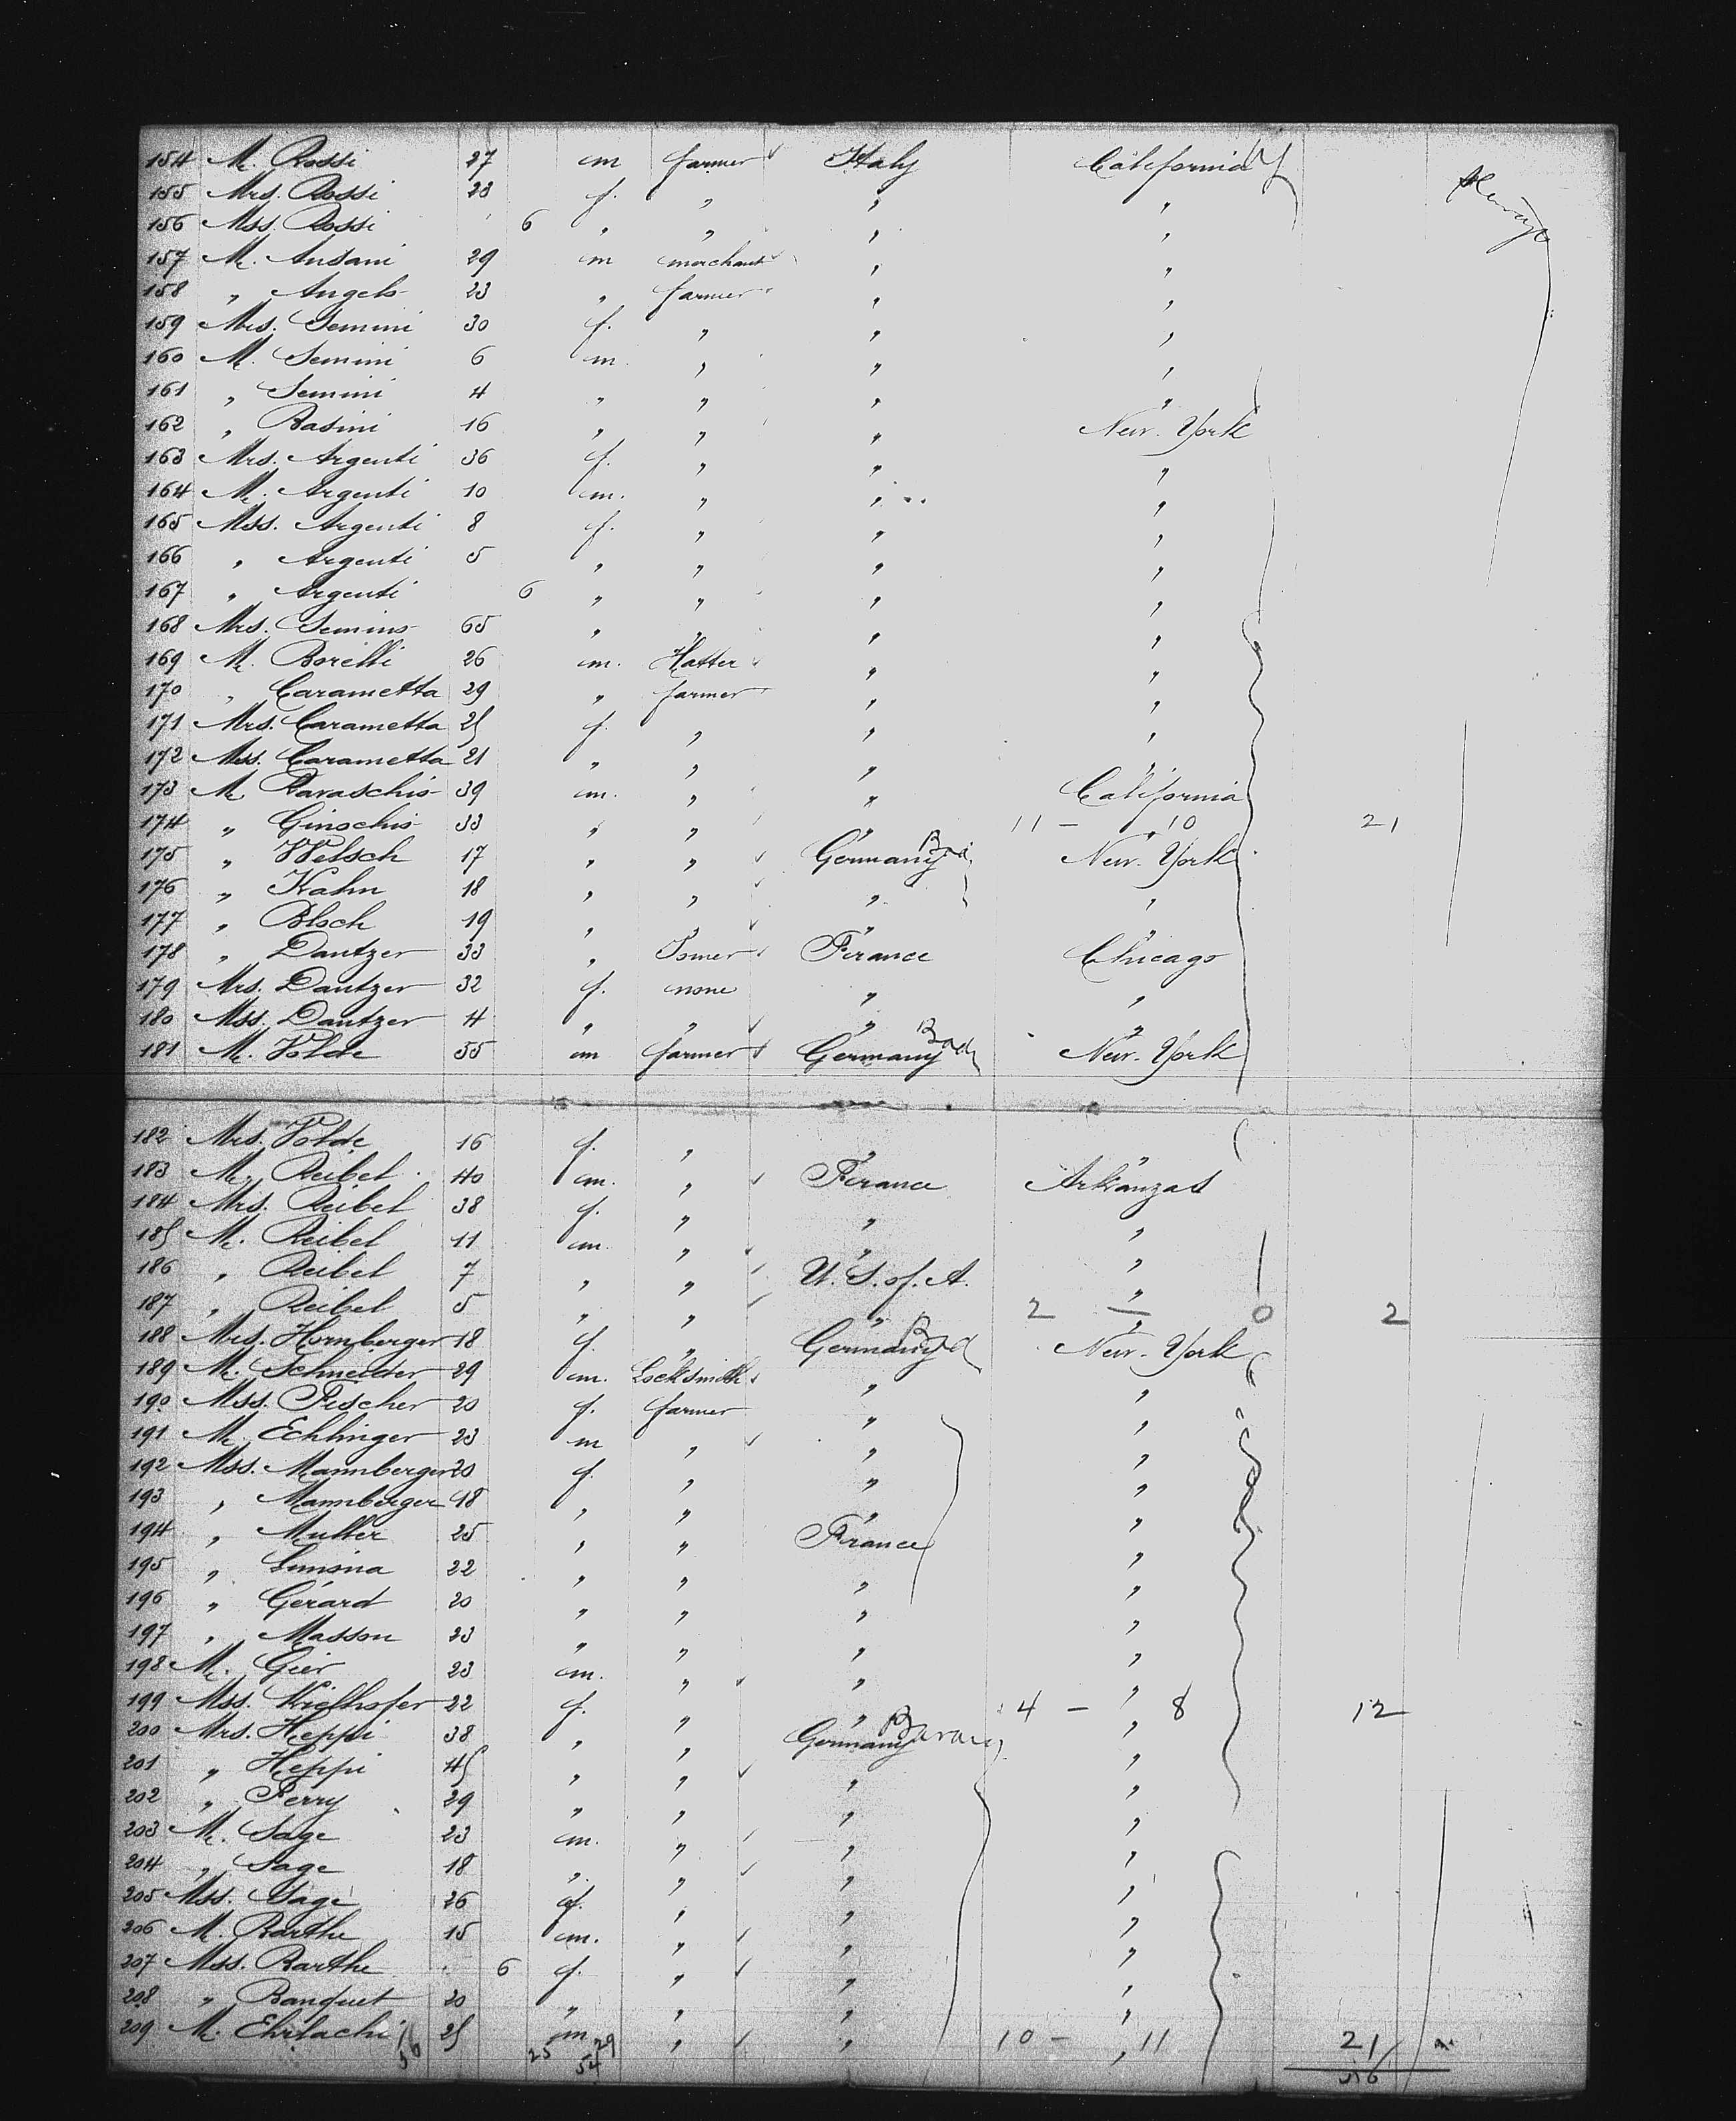 154 M. Rossi 27 m farmer Italy California
155 Mrs. Rossi 28 f. " " "
156 Mss. Rossi 6 " " " "
157 M. Ansani 29 m merchant " "
158 " Angelo 23 " farmer " "
159 Mrs. Semini 30 f. " " "
160 M. Semini 6 m " " "
161 " Semini 4 " " " "
162 " Rasini 16 " " " New-York
163 Mrs. Argenti 36 f. " " "
164 M. Argenti 10 m. " " "
165 Mss. Argenti 8 f. " " "
166 " Argenti 5 " " " "
167 " Argenti 6 " " " "
168 Mrs. Semino 65 " " " "
169 M. Borelli 26 m. Hatter " "
170 " Carametta 29 " farmer " "
171 Mrs. Carametta 25 f. " " "
172 Mss. Carametta 21 " " " "
173 M. Ravaschio 39 m. " " California
174 " Ginochio 33 " " " 11 - " 10 21
175 " Welsch 17 " " Germany Bad New-York
176 " Kahn 18 " " " "
177 " Blsch 19 " " " "
178 " Dantzer 33 " France Chicago
179 Mrs. Dantzer 32 f. none " "
180 Mss. Dantzer 4 " " " "
181 M. Volde 55 m farmer Germany Bad New-York
182 Mrs. Volde 16 f. " " "
183 M. Reibel 40 m. " France Arkanzas
184 Mrs. Reibel 38 f. " " "
185 M. Reibel 11 m. " " "
186 " Reibel 7 " " U.S. of. A. "
187 " Reibel 5 " " " 2 — " 0 2
188 Mrs. Hornberger 18 f. " Germany Bad New-York
189 M. Schneider 29 m. Locksmith " "
190 Mss. Fischer 20 f. farmer " "
191 M. Echlinger 23 m " " "
192 Mss. Mannberger 20 f. " " "
193 " Mannberger 18 " " " "
194 " Muller 25 " " France "
195 " 22 " " " "
196 " Gérard 20 " " " "
197 " Masson 23 " " " "
198 M. Gier 23 m. " " "
199 Mss. Kielhofer 22 f. " " 4 - " 8 12
200 Mrs. Heppi 38 " " Germany "
201 " Heppi 45 " " " "
202 " Ferry 29 " " " "
203 M. Sage 23 m. " " "
204 " Sage 18 " " " "
205 Mss. Sage 26 f. " " "
206 M. Barthe 15 m. " " "
207 Mss. Barthe 6 f. " " "
208 " Banquet 20 " " " "
209 M. Ehrlachi 25 m " " 10 - " 11 21
56 25 29 54 56